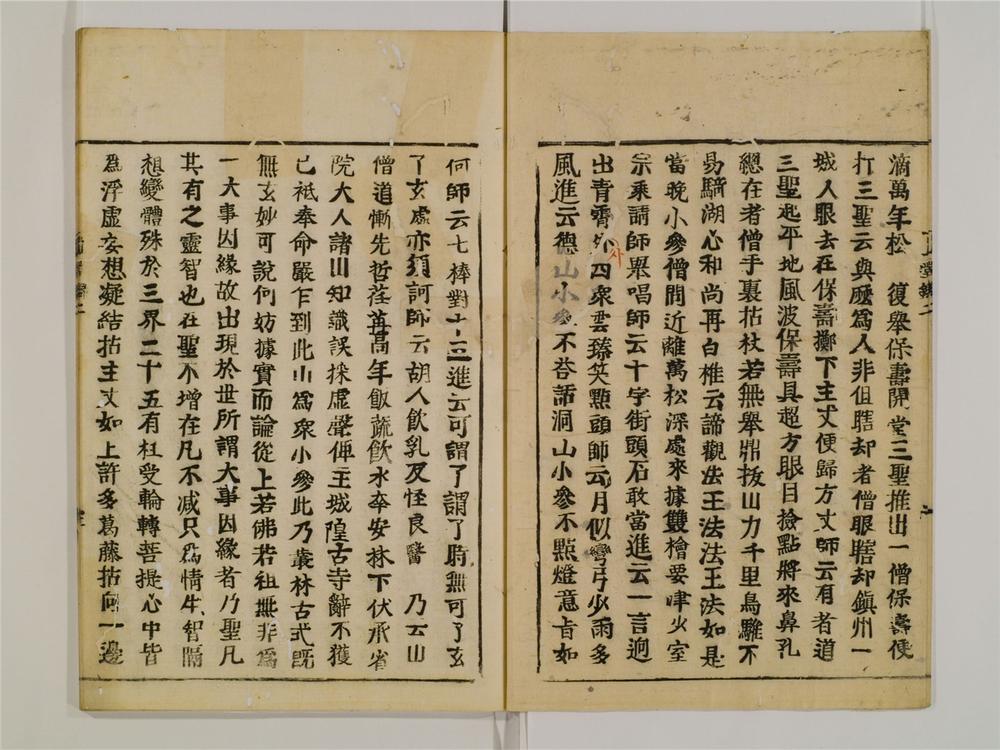 滴萬年松　復舉保壽開堂三聖推出一僧保壽便
打三聖云與麼爲人非但瞎却者僧眼瞎却鎮州一
城人眼去在保壽擲下主丈便歸方丈師云有者道
三聖起平地風波保壽具超方眼目撿點將來鼻孔
緫在者僧手裏拈杖若無舉鼎拔山力千里烏騅不
易騎湖心和尚再白椎云諦觀法王法法王法如是
當晚小參僧問近離萬松深處來據雙檜要津少室
宗乘請師累唱師云十字街頭石敢當進云一言迥
出青霄外四衆雲臻笑點頭師云月似彎弓少雨多
風進云德山小參不荅話洞山小參不點燈意旨如
何師云七棒對十三進云可謂了謂了時無可了玄
了玄處亦須訶師云胡人飲乳反怪良醫　乃云山
僧道慚先哲荏苒暮年飯蔬飲水卒安林下伏承省
院大人諸山知識誤採虛聲俾主城隍古寺辭不獲
已袛奉命嚴乍到此山爲衆小參此乃叢林古式既
無玄妙可說何妨據實而論從上若佛若祖無非爲
一大事因緣故出現於世所謂大事因緣者乃聖凡
共有之靈智也在聖不增在凡不减只爲情生智隔
想變體殊於三界二十五有枉受輪轉菩提心中皆
爲浮虛妄想凝結拈主丈如上許多葛藤拈向一邊